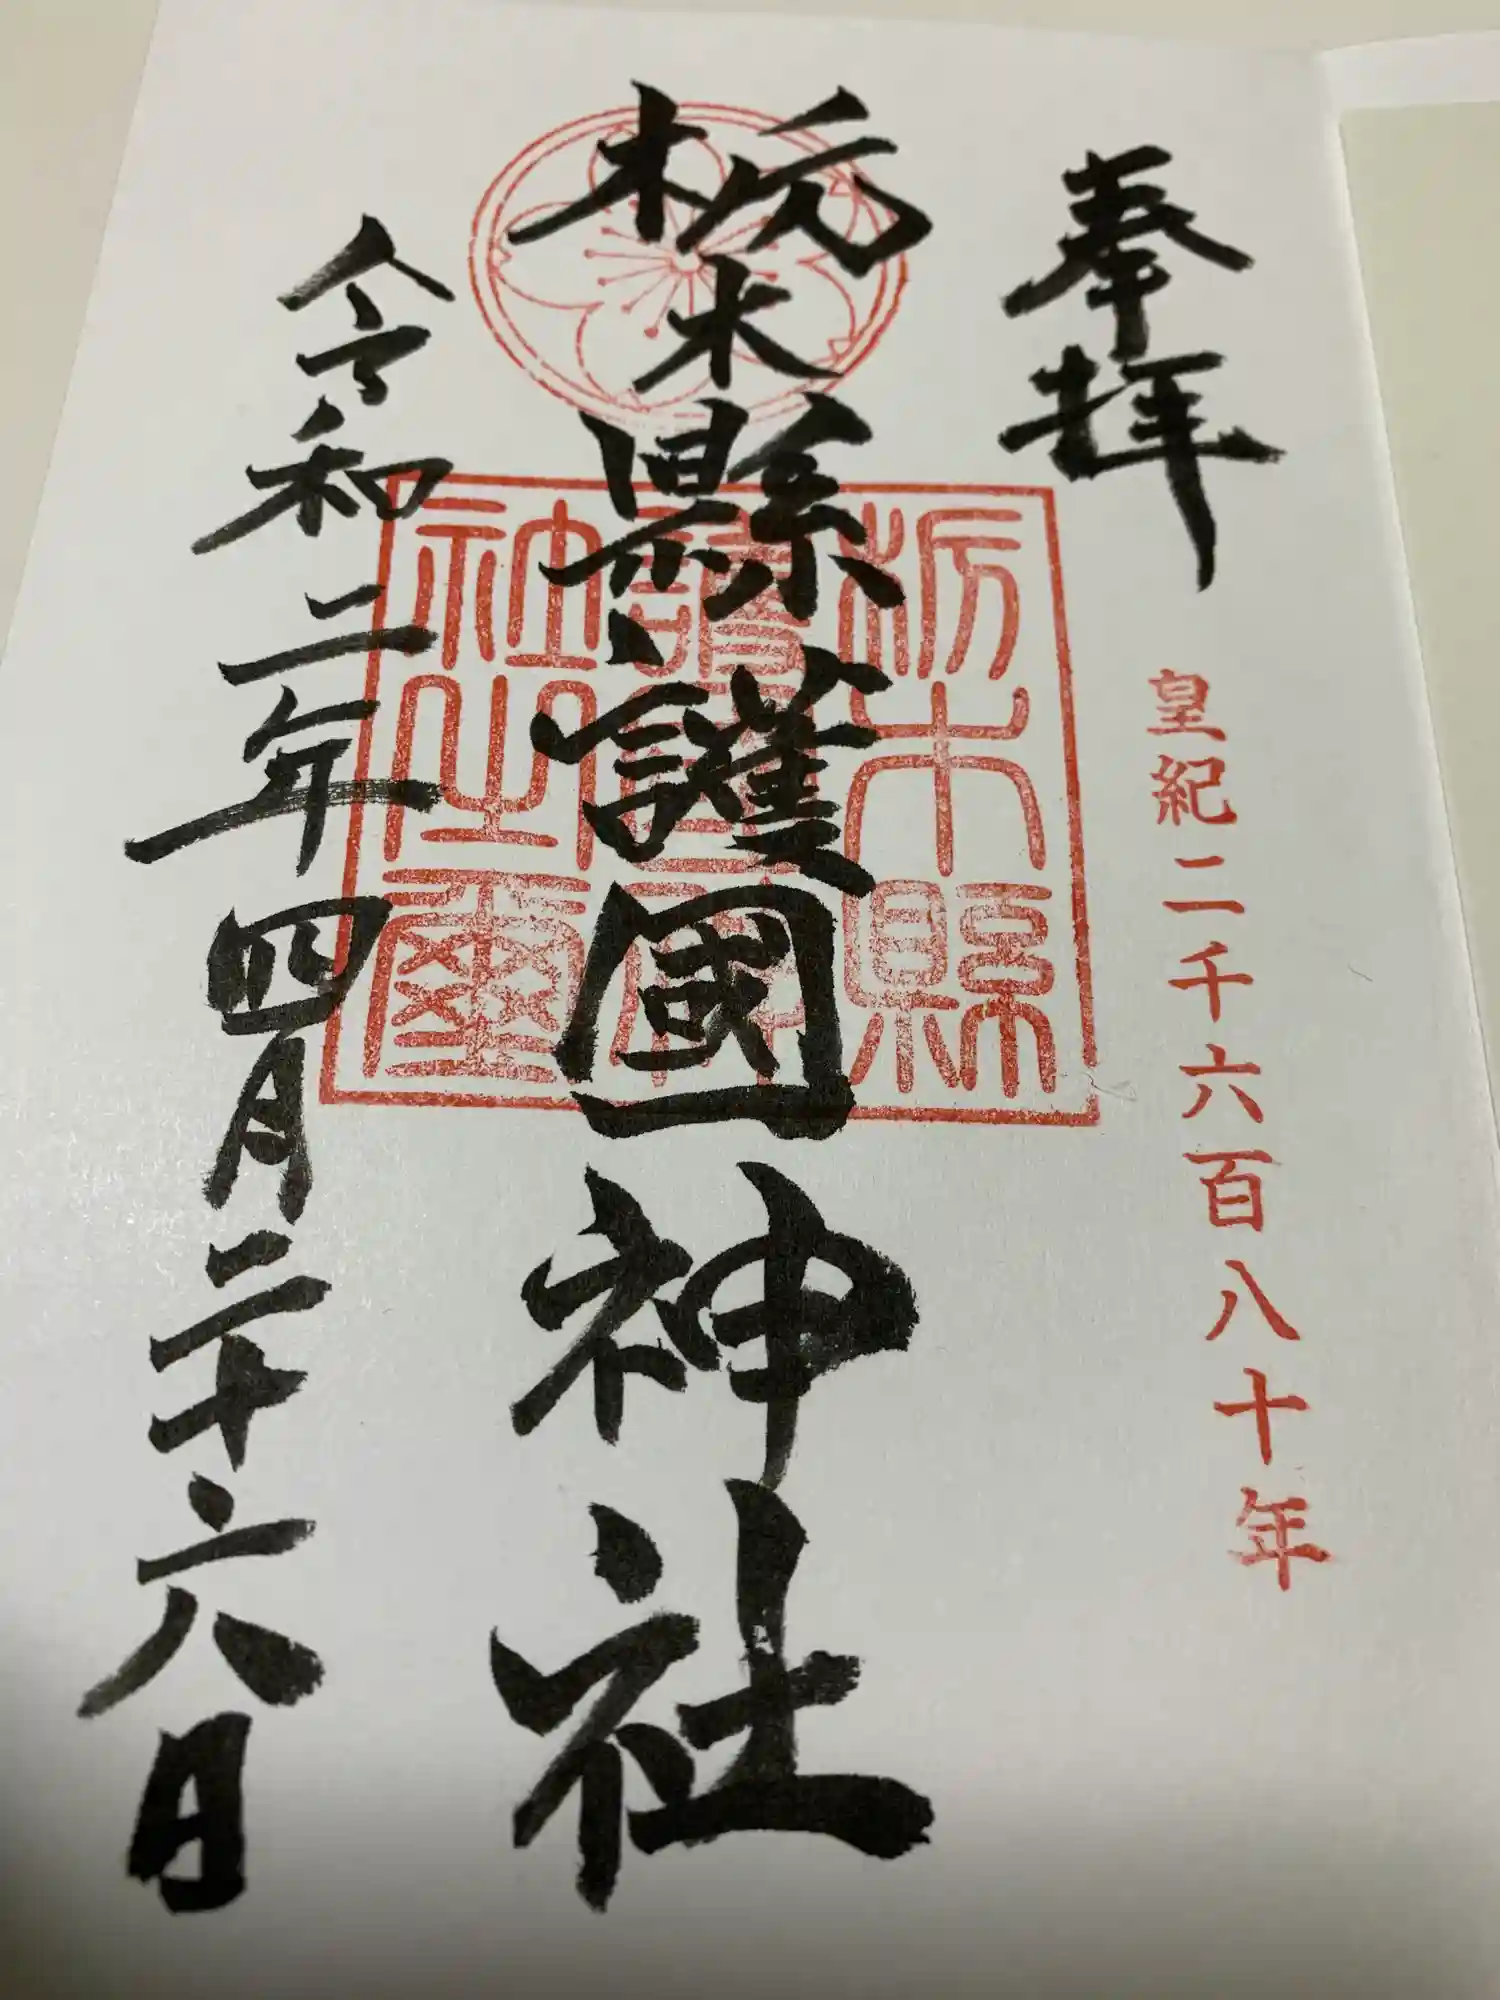 奉拝
皇紀二千六百八十年
栃木縣護國神社
栃木縣
護國神
社之璽
令和二年四月二十六日